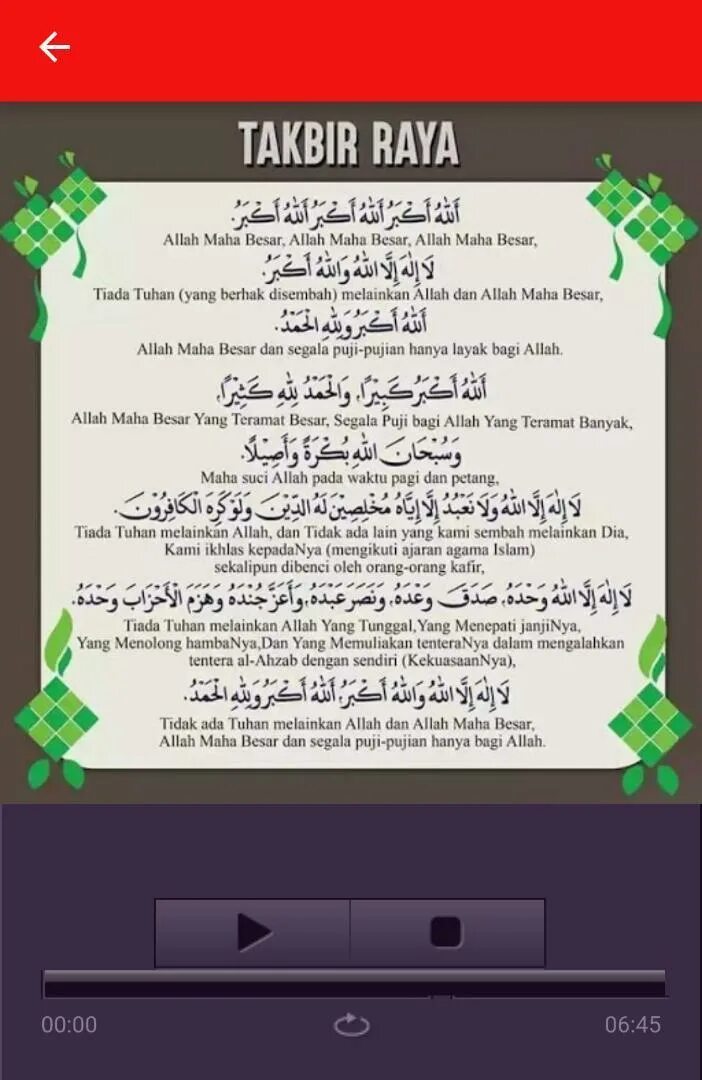 TAKBIR RAYA
اَللهُ أَكْبَرُ اَللهُ أَكْبَرُ اَللهُ أَكْبَرُ.
Allah Maha Besar, Allah Maha Besar, Allah Maha Besar,
لَا إِلٰهَ إِلَّا اللهُ وَاللهُ أَكْبَرُ.
Tiada Tuhan (yang berhak disembah) melainkan Allah dan Allah Maha Besar,
اَللهُ أَكْبَرُ وَلِلهِ الْحَمْدُ.
Allah Maha Besar dan segala puji-pujian hanya layak bagi Allah.
اَللهُ أَكْبَرُ كَبِيْرًا، وَالْحَمْدُ لِلهِ كَثِيْرًا،
Allah Maha Besar Yang Teramat Besar, Segala Puji bagi Allah Yang Teramat Banyak,
وَسُبْحَانَ اللهِ بُكْرَةً وَأَصِيْلًا.
Maha suci Allah pada waktu pagi dan petang,
لَا إِلٰهَ إِلَّا اللهُ وَلَا نَعْبُدُ إِلَّا إِيَّاهُ مُخْلِصِيْنَ لَهُ الدِّيْنَ وَلَوْ كَرِهَ الْكَافِرُوْنَ.
Tiada Tuhan melainkan Allah, dan Tidak ada lain yang kami sembah melainkan Dia,
Kami ikhlas kepadaNya (mengikuti ajaran agama Islam)
sekalipun dibenci oleh orang-orang kafir,
لَا إِلٰهَ إِلَّا اللهُ وَحْدَهُ، صَدَقَ وَعْدَهُ، وَنَصَرَ عَبْدَهُ، وَأَعَزَّ جُنْدَهُ وَهَزَمَ الْأَحْزَابَ وَحْدَهُ.
Tiada Tuhan melainkan Allah Yang Tunggal,Yang Menepati janjiNya,
Yang Menolong hambaNya,Dan Yang Memuliakan tenteraNya dalam mengalahkan
tentera al-Ahzab dengan sendiri (KekuasaanNya),
لَا إِلٰهَ إِلَّا اللهُ وَاللهُ أَكْبَرُ، اَللهُ أَكْبَرُ وَلِلهِ الْحَمْدُ.
Tidak ada Tuhan melainkan Allah dan Allah Maha Besar,
Allah Maha Besar dan segala puji-pujian hanya bagi Allah.
00:00
06:45